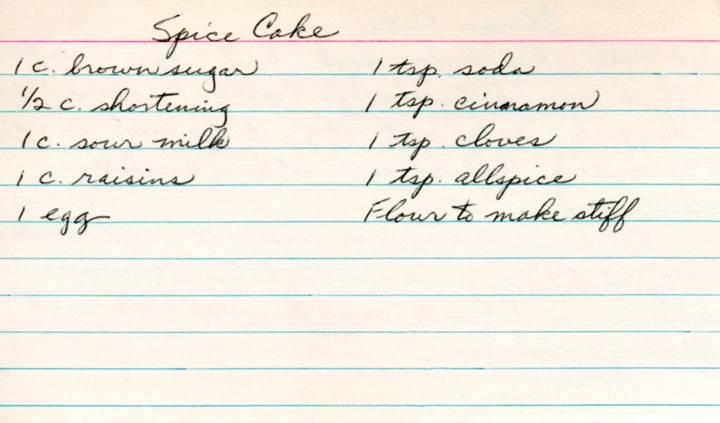 Spice Cake
1 c. brown sugar
1/2 c. shortening
1 c. sour milk
1 c. raisins
1 egg
1 tsp. soda
1 tsp. cinnamon
1 tsp. cloves
1 tsp. allspice
Flour to make stiff